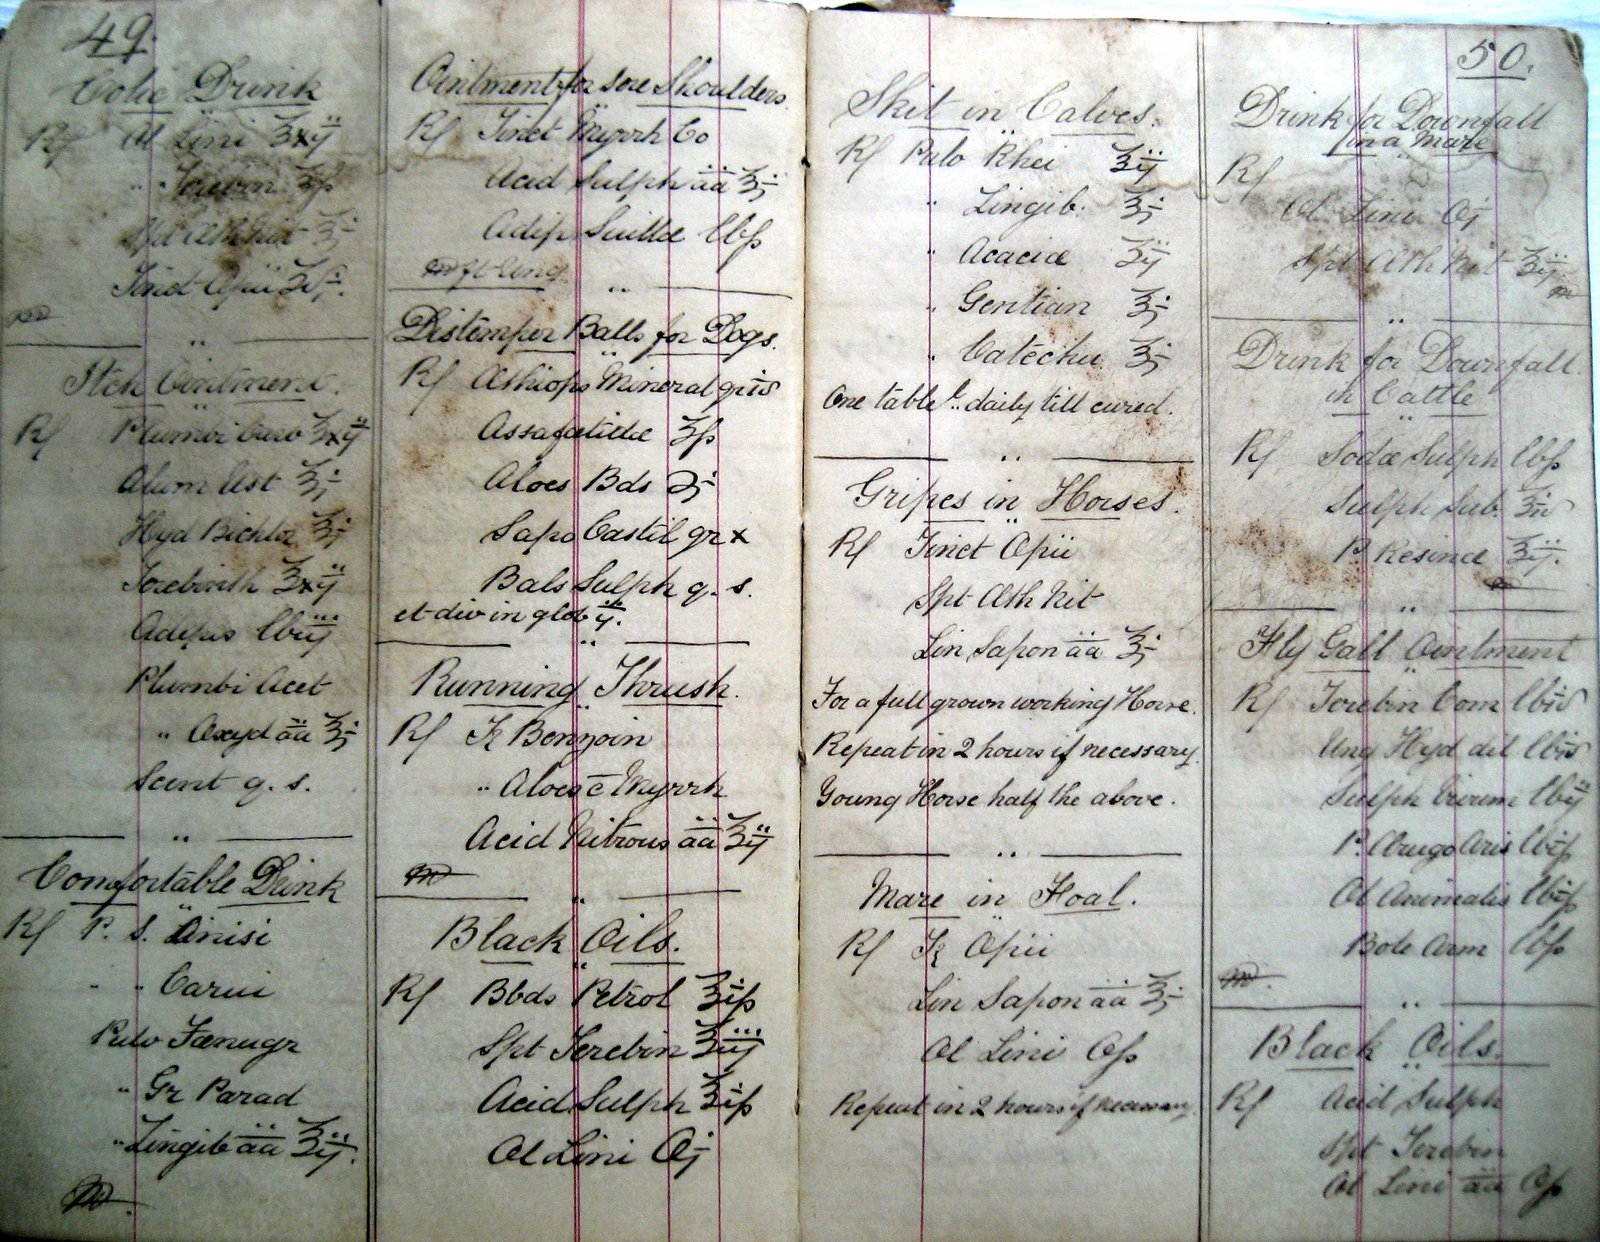 49.
Colic Drink
Rx Ol Lini ℥xij
" Terebin ℥ß
Spt Æth Nit ℥j
Tinct Opii ℥vj.
m
Itch Ointment.
Rx Plumbi Carb ℥xij
Alum Ust ℥j
Hyd Bichlor ℥j
Terebinth ℥xij
Adipus lbiij
Plumbi Acet
" Oxyd āā ℥j
Scent q. s.
Comfortable Drink
Rx P. S. Anisi
" " Carui
Pulv Fænugr
" Gr Parad
" Zingib āā ℥ij.
m.
Ointment for Sore Shoulders.
Rx Tinct Myrrh Co
Acid Sulph āā ℥j
Adip Suillæ lbß
m ft Ung
Distemper Balls for Dogs.
Rx Æthiops Mineral gr iv
Assafœtidæ ʒß
Aloes Bds ℈j
Sapo Castil gr x
Bals Sulph q. s.
et div in glob ij.
Running Thrush.
Rx Tr Benzoin
" Aloes c̄ Myrrh
Acid Nitrous āā ℥ij
m
Black Oils.
Rx Bbds Petrol ℥iß
Spt Terebin ℥iij
Acid Sulph ℥iß
Ol Lini Oj
50.
Skit in Calves.
Rx Pulv Rhei ℥ij
" Zingib. ℥j
" Acaciæ ℥ij
" Gentian ℥j
" Catechu ℥j
One table l.. daily till cured.
Gripes in Horses.
Rx Tinct Opii
Spt Æth Nit
Lin Sapon āā ℥j
For a full grown working Horse.
Repeat in 2 hours if necessary.
Young Horse half the above.
Mare in Foal.
Rx Tr Opii
Lin Sapon āā ℥j
Ol Lini Oß
Repeat in 2 hours if necessary.
Drink for Downfall
in a Mare
Rx
Ol Lini Oj
Spt Æth Nit ℥ij.
m
Drink for Downfall
in Cattle
Rx Sodæ Sulph lbß
Sulph Sub. ℥iv
P. Resinæ ℥ij.
m
Fly Gall Ointment
Rx Terebin Com lbiv
Ung Hyd dil lbiv
Sulph Vivum lbij
P. Ærugo Æris lbiß
Ol Animalis lbiß
Bole Arm lbß
m.
Black Oils.
Rx Acid Sulph
Spt Terebin
Ol Lini āā Oß